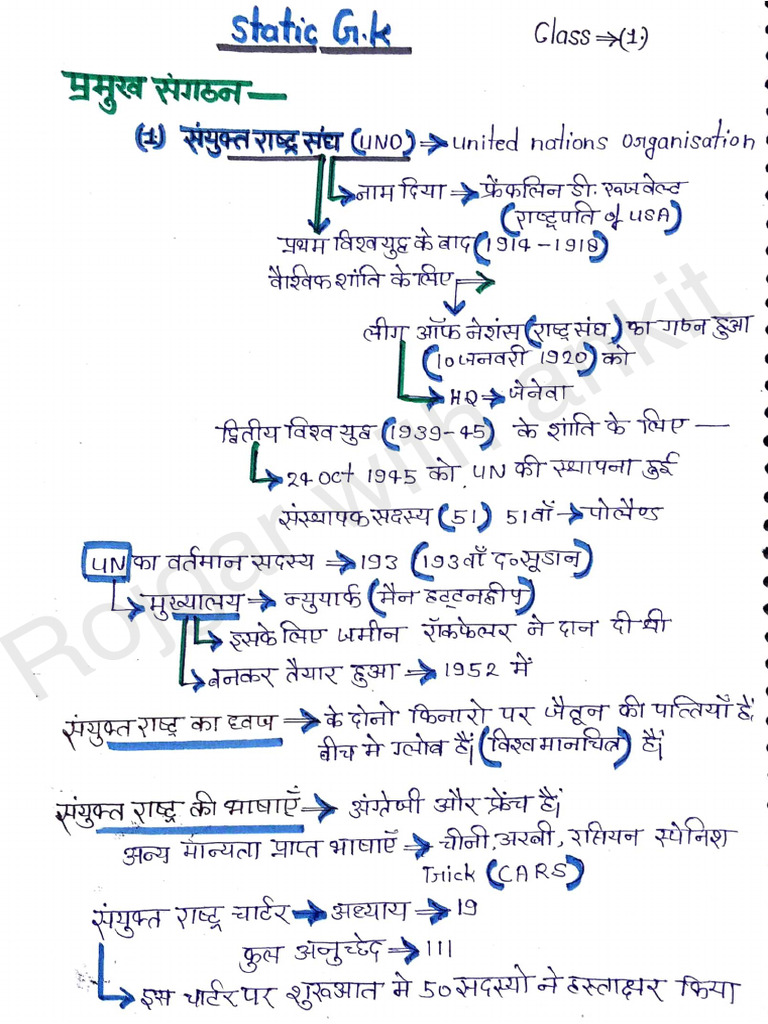 Static G.k
Class ⇒ (1.)
प्रमुख संगठन —
(1.) संयुक्त राष्ट्र संघ (UNO) → united nations organisation
नाम दिया → फ्रैंकलिन डी. रूजवेल्ट
(राष्ट्रपति of USA)
प्रथम विश्व युद्व के बाद (1914-1918)
वैश्विक शांति के लिए →
लीग ऑफ नेशंस (राष्ट्र संघ) का गठन हुआ
(10 जनवरी 1920) को
HQ → जेनेवा
द्वितीय विश्व युद्व (1939-45) के शांति के लिए —
24 oct 1945 को UN की स्थापना हुई
संस्थापक सदस्य (51) 51वाँ → पोलैण्ड
UN का वर्तमान सदस्य → 193 (193वाँ द० सूडान)
मुख्यालय → न्युयार्क (मैन हट्टन द्वीप)
इसके लिए जमीन रॉकफेलर ने दान दी थी
बनकर तैयार हुआ → 1952 में
संयुक्त राष्ट्र का ध्वज → के दोनो किनारो पर जैतून की पत्तियाँ हैं,
बीच मे ग्लोब हैं। (विश्व मानचित्र) हैं।
संयुक्त राष्ट्र की भाषाएँ → अंग्रेजी और फ्रेंच हैं।
अन्य मान्यता प्राप्त भाषाएँ → चीनी, अरबी, रशियन स्पेनिश
Trick (CARS)
संयुक्त राष्ट्र चार्टर → अध्याय → 19
कुल अनुच्छेद → 111
इस चार्टर पर शुरूआत मे 50 सदस्यो ने हस्ताक्षर किया
Rojgar with ankit